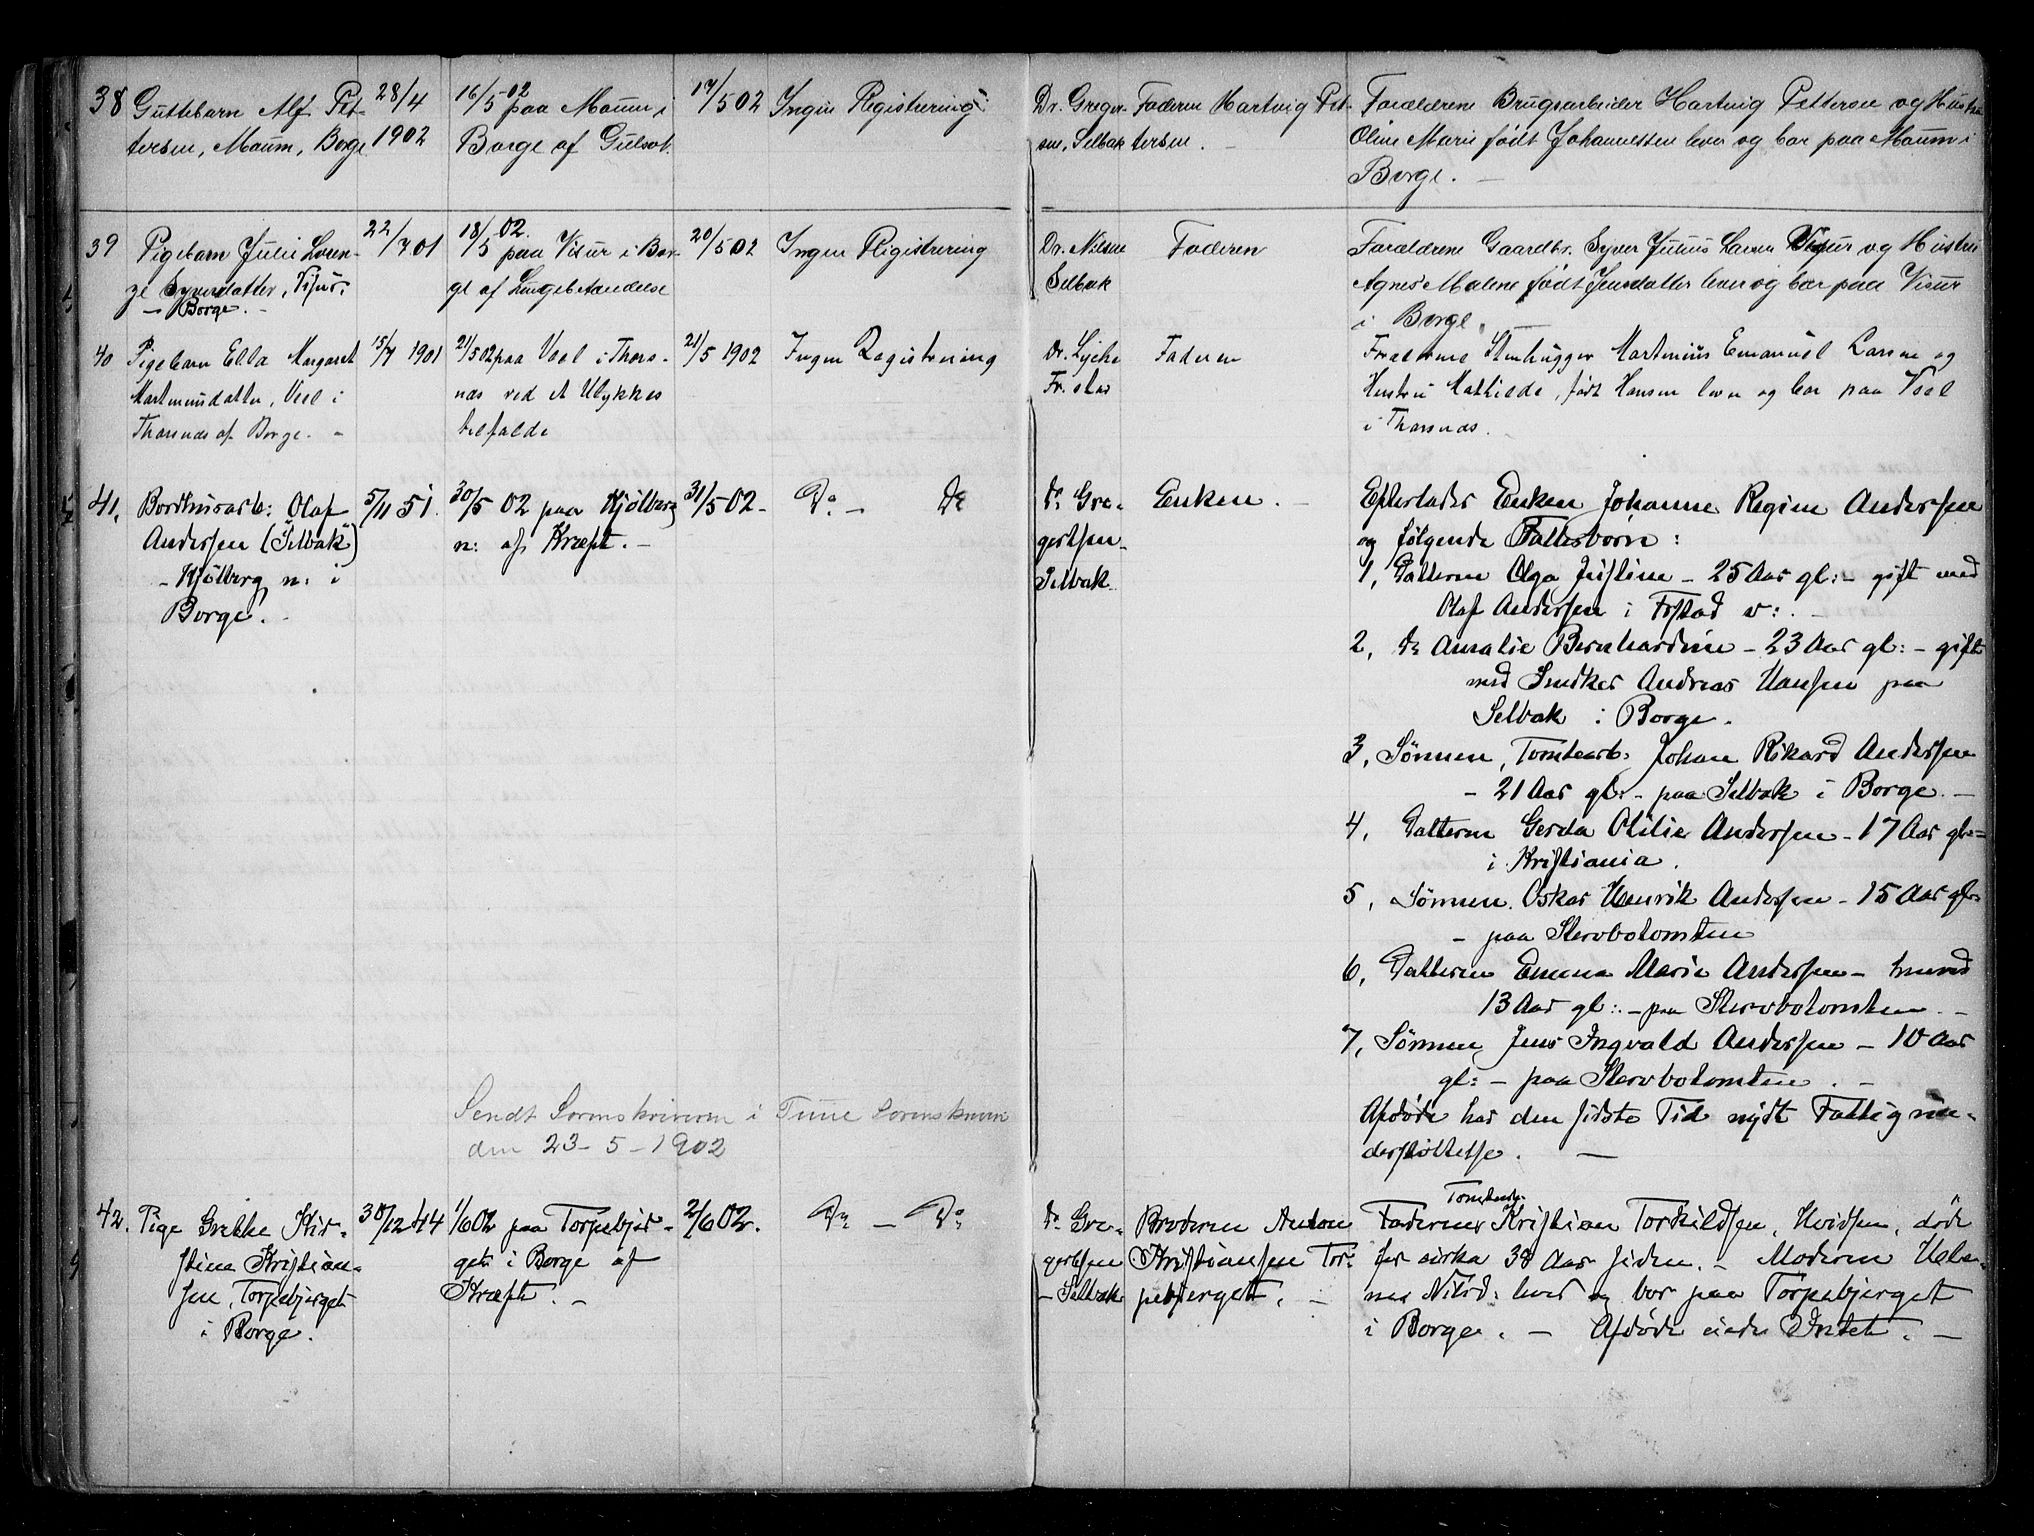 38 Guttebarn Alf Pet-
tersen, Maum, Borge
28/4
1902
16/5 02 paa Maum i
Borge af Gulsot.
17/5 02
Ingen Registrering
Dr. Greger-
sen, Selbak
Faderen Hartvig Pet-
tersen. -
Forældrene Brugsarbeider Hartvig Pettersen og Hustru
Oline Marie født Johannessen lever og bor paa Maum i
Borge. -
39 Pigebarn Julie Loren-
ze Syversdatter, Visur,
- Borge. -
22/7 01
18/5 02. paa Visur i Bor-
ge af Lungebetændelse
20/5 02
Ingen Registrering
Dr. Nilsen
Selbak
Faderen
Forældrene Gaardbr. Syver Julius Larsen Visur og Hustru
Agnes Malene født Jensdatter lever og bor paa Visur
i Borge.
40 Pigebarn Ella Margaret
Martinusdatter, Veel i
Thorsnæs af Borge. -
15/7 1901
21/5 02 paa Veel i Thors-
næs ved et Ulykkes
tilfælde
21/5 1902
Ingen Registrering
Dr. Lyche
Fr.stad
Faderen
Forældrene Stenhugger Martinius Emanuel Larsen og
Hustru Mathilde, født Hansen lever og bor paa Veel
i Thorsnæs.
41, Bordhusarb: Olaf
Anderssen (Selbak)
- Kjølberg n: i
Borge. -
5/11 51.
30/5 02 paa Kjølberg
n: af Kræft. -
31/5 02 -
Do - Do
Dr Gre-
gersen -
Selbak
Enken. -
Efterlader Enken Johanne Regine Anderssen
og følgende Fællesbørn:
1, Datteren Olga Justine - 25 Aar gl: - gift med
Olaf Anderssen i Frstad v: -
2, Do Amalie Bernhardine - 23 Aar gl: - gift
med Snedker Andreas Hanssen paa
Selbak i Borge.
3, Sønnen, Tomtearb: Johan Rikard Anderssen
- 21 Aar gl: - paa Selbak i Borge. -
4, Datteren Gerda Otilie Anderssen - 17 Aar gl: -
i Kristiania.
5, Sønnen Oskar Henrik Anderssen - 15 Aar gl:
- paa Stervbotomten
6, Datteren Emma Marie Anderssen -
13 Aar gl: - paa Stervbotomten. -
7, Sønnen Jens Ingvald Anderssen - 10 Aar
gl: - paa Stervbotomten. -
Afdøde har den sidste Tid nydt Fattigun-
derstøttelse. -
Sendt Sorenskriveren i Tune Sorenskriveri
den 23 - 5 - 1902
42. Pige Grethe Kir-
stine Kristian-
sen, Torpebjerget
i Borge.
30/12 44
1/6 02 paa Torpebjer-
get i Borge af
Kræft. -
2/6 02.
Do - Do
Dr Gre-
gersen
- Selbak
Broderen Anton
Kristiansen Tor-
pebjerget. -
Tomtearb.
Faderen Kristian Torkildsen, Hvidsen, døde
for cirka 38 Aar siden. - Moderen Hele-
ne Nilsd: lever og bor paa Torpebjerget
i Borge. - Afdøde eiede Intet. -